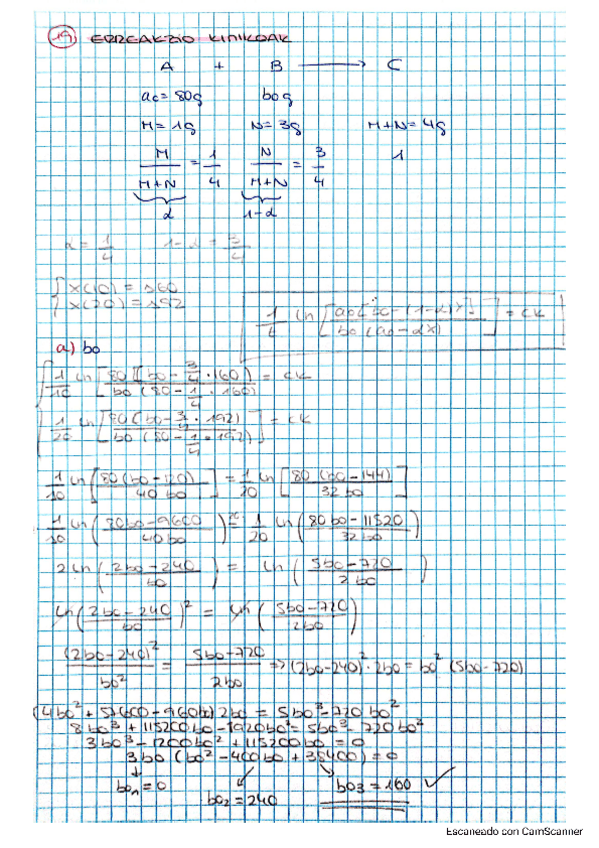 19 ERREAKZIO KIMIKOAK
A + B ⟶ C
a₀ = 80g b₀ g
M = 1g N = 3g M+N = 4g
M/(M+N) = 1/4 N/(M+N) = 3/4 1
α 1-α
α = 1/4 1-α = 3/4
{ x(10) = 160
x(20) = 192
1/t ln [a₀[b₀-(1-α)x] / b₀(a₀-αx)] = ck
a) b₀
{ 1/10 ln [80(b₀ - 3/4 · 160) / b₀(80 - 1/4 · 160)] = ck
1/20 ln [80(b₀ - 3/4 · 192) / b₀(80 - 1/4 · 192)] = ck
1/10 ln [80(b₀-120) / 40b₀] = 1/20 ln [80(b₀-144) / 32b₀]
1/10 ln (80b₀-9600 / 40b₀) = 1/20 ln (80b₀-11520 / 32b₀)
2 ln (2b₀-240 / b₀) = ln (5b₀-720 / 2b₀)
ln (2b₀-240 / b₀)² = ln (5b₀-720 / 2b₀)
(2b₀-240)² / b₀² = 5b₀-720 / 2b₀ ⇒ (2b₀-240)² · 2b₀ = b₀² (5b₀-720)
(4b₀² + 57600 - 960b₀) 2b₀ = 5b₀³ - 720b₀²
8b₀³ + 115200b₀ - 1920b₀² = 5b₀³ - 720b₀²
3b₀³ - 1200b₀² + 115200b₀ = 0
3b₀ (b₀² - 400b₀ + 38400) = 0
b₀₁ = 0 b₀₂ = 240 b₀₃ = 160 ✓
Escaneado con CamScanner